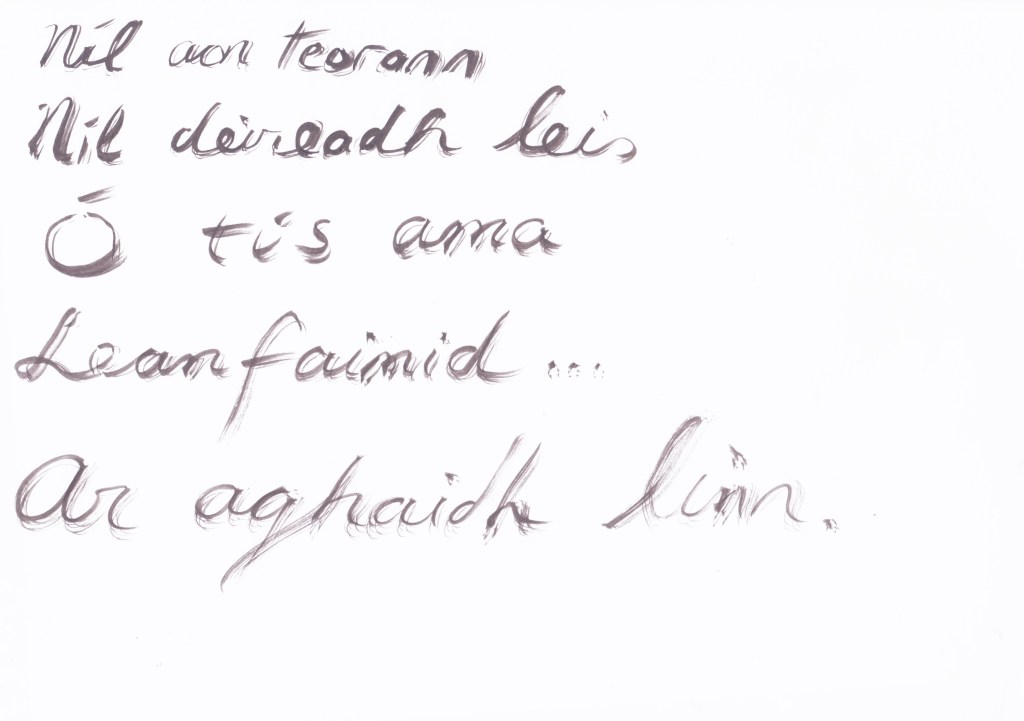 Níl aon teorann
Níl deireadh leis
Ó tús ama
Leanfaimid ...
Ar aghaidh linn.